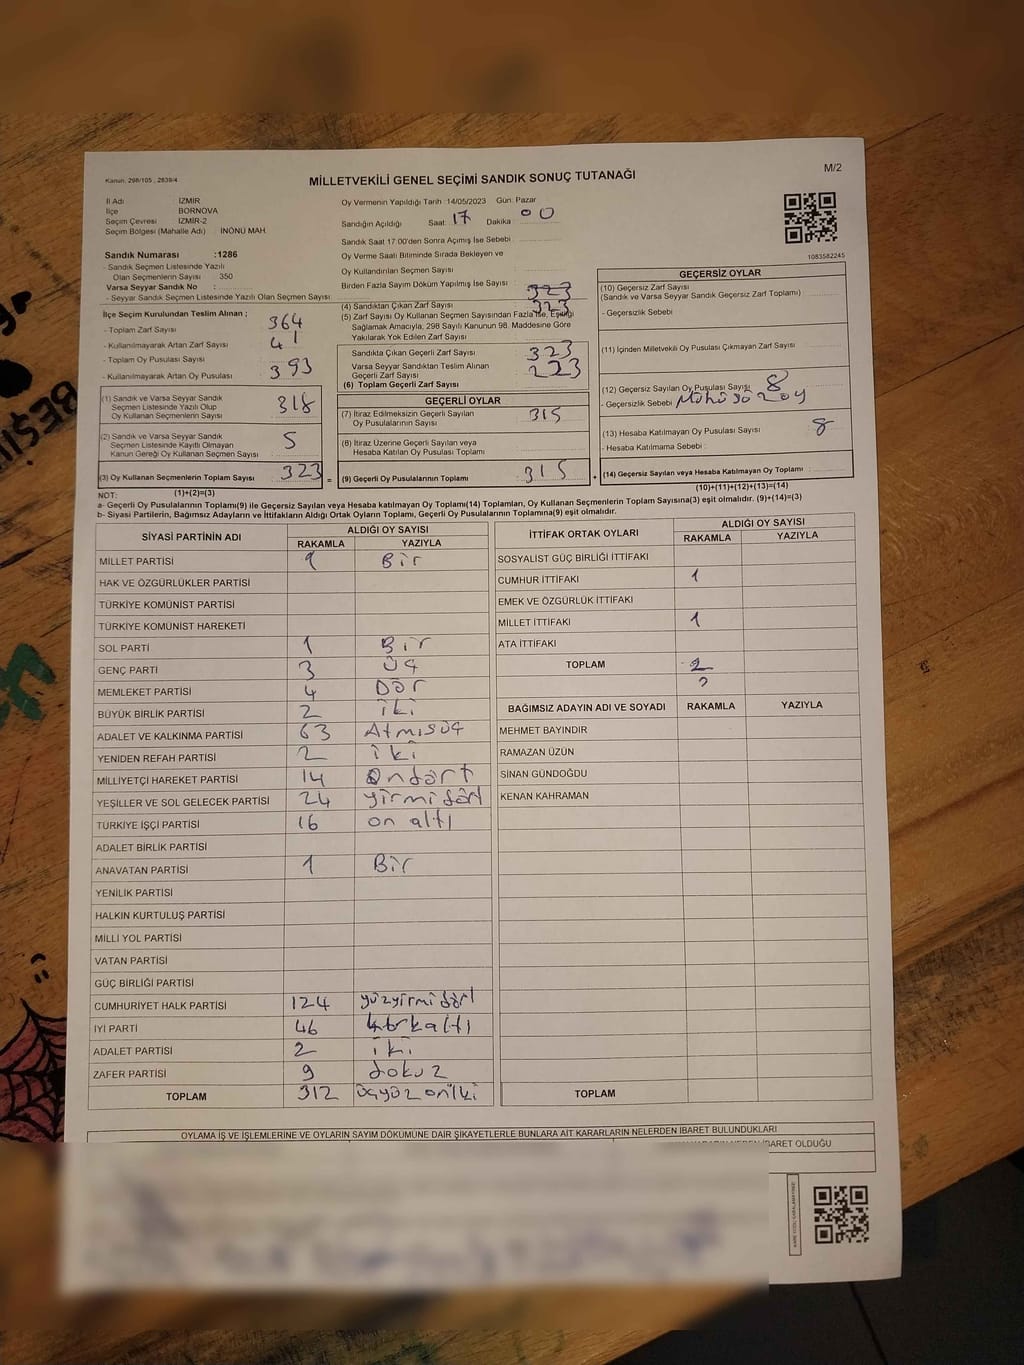 Kanun, 298/105 , 2839/4
MİLLETVEKİLİ GENEL SEÇİMİ SANDIK SONUÇ TUTANAĞI
M/2
İl Adı : İZMİR
İlçe : BORNOVA
Seçim Çevresi : İZMİR-2
Seçim Bölgesi (Mahalle Adı) : İNÖNÜ MAH.
Oy Vermenin Yapıldığı Tarih :14/05/2023 Gün: Pazar
Sandığın Açıldığı Saat: 17 Dakika : 00
Sandık Saat 17:00'den Sonra Açımış İse Sebebi :
Oy Verme Saati Bitiminde Sırada Bekleyen ve
Oy Kullandırılan Seçmen Sayısı :
Birden Fazla Sayım Döküm Yapılmış İse Sayısı :
1083582245
Sandık Numarası :1286
- Sandık Seçmen Listesinde Yazılı
Olan Seçmenlerin Sayısı : 350
Varsa Seyyar Sandık No :
- Seyyar Sandık Seçmen Listesinde Yazılı Olan Seçmen Sayısı:
İlçe Seçim Kurulundan Teslim Alınan ;
- Toplam Zarf Sayısı : 364
- Kullanılmayarak Artan Zarf Sayısı : 41
- Toplam Oy Pusulası Sayısı : 393
- Kullanılmayarak Artan Oy Pusulası :
(1) Sandık ve Varsa Seyyar Sandık
Seçmen Listesinde Yazılı Olup
Oy Kullanan Seçmenlerin Sayısı : 318
(2) Sandık ve Varsa Seyyar Sandık
Seçmen Listesinde Kayıtlı Olmayan
Kanun Gereği Oy Kullanan Seçmen Sayısı : 5
(3) Oy Kullanan Seçmenlerin Toplam Sayısı : 323
(1)+(2)=(3)
323
(4) Sandıktan Çıkan Zarf Sayısı : 323
(5) Zarf Sayısı Oy Kullanan Seçmen Sayısından Fazla İse, Eşitliği
Sağlamak Amacıyla, 298 Sayılı Kanunun 98. Maddesine Göre
Yakılarak Yok Edilen Zarf Sayısı :
Sandıkta Çıkan Geçerli Zarf Sayısı : 323
Varsa Seyyar Sandıktan Teslim Alınan
Geçerli Zarf Sayısı : 223
(6) Toplam Geçerli Zarf Sayısı :
GEÇERLİ OYLAR
(7) İtiraz Edilmeksizin Geçerli Sayılan
Oy Pusulalarının Sayısı : 315
(8) İtiraz Üzerine Geçerli Sayılan veya
Hesaba Katılan Oy Pusulası Toplamı :
= (9) Geçerli Oy Pusulalarının Toplamı : 315 +
GEÇERSİZ OYLAR
(10) Geçersiz Zarf Sayısı
(Sandık ve Varsa Seyyar Sandık Geçersiz Zarf Toplamı) :
- Geçersizlik Sebebi :
(11) İçinden Milletvekili Oy Pusulası Çıkmayan Zarf Sayısı :
(12) Geçersiz Sayılan Oy Pusulası Sayısı : 8
- Geçersizlik Sebebi :
(13) Hesaba Katılmayan Oy Pusulası Sayısı : 8
- Hesaba Katılmama Sebebi :
(14) Geçersiz Sayılan veya Hesaba Katılmayan Oy Toplamı :
(10)+(11)+(12)+(13)=(14)
NOT:
a- Geçerli Oy Pusulalarının Toplamı(9) ile Geçersiz Sayılan veya Hesaba katılmayan Oy Toplamı(14) Toplamları, Oy Kullanan Seçmenlerin Toplam Sayısına(3) eşit olmalıdır. (9)+(14)=(3)
b- Siyasi Partilerin, Bağımsız Adayların ve İttifakların Aldığı Ortak Oyların Toplamı, Geçerli Oy Pusulalarının Toplamına(9) eşit olmalıdır.
SİYASİ PARTİNİN ADI ALDIĞI OY SAYISI
RAKAMLA YAZIYLA
MİLLET PARTİSİ 1 Bir
HAK VE ÖZGÜRLÜKLER PARTİSİ
TÜRKİYE KOMÜNİST PARTİSİ
TÜRKİYE KOMÜNİST HAREKETİ
SOL PARTİ 1 Bir
GENÇ PARTİ 3 üç
MEMLEKET PARTİSİ 4 Dör
BÜYÜK BİRLİK PARTİSİ 2 iki
ADALET VE KALKINMA PARTİSİ 63 Atmısüç
YENİDEN REFAH PARTİSİ 2 iki
MİLLİYETÇİ HAREKET PARTİSİ 14 Ondört
YEŞİLLER VE SOL GELECEK PARTİSİ 24 yirmidört
TÜRKİYE İŞÇİ PARTİSİ 16 on altı
ADALET BİRLİK PARTİSİ
ANAVATAN PARTİSİ 1 Bir
YENİLİK PARTİSİ
HALKIN KURTULUŞ PARTİSİ
MİLLİ YOL PARTİSİ
VATAN PARTİSİ
GÜÇ BİRLİĞİ PARTİSİ
CUMHURİYET HALK PARTİSİ 124 yüzyirmidört
İYİ PARTİ 46 kırkaltı
ADALET PARTİSİ 2 iki
ZAFER PARTİSİ 9 dokuz
TOPLAM 312 üçyüz oniki
İTTİFAK ORTAK OYLARI ALDIĞI OY SAYISI
RAKAMLA YAZIYLA
SOSYALİST GÜÇ BİRLİĞİ İTTİFAKI
CUMHUR İTTİFAKI 1
EMEK VE ÖZGÜRLÜK İTTİFAKI
MİLLET İTTİFAKI 1
ATA İTTİFAKI
TOPLAM 2
2
BAĞIMSIZ ADAYIN ADI VE SOYADI RAKAMLA YAZIYLA
MEHMET BAYINDIR
RAMAZAN ÜZÜN
SİNAN GÜNDOĞDU
KENAN KAHRAMAN
TOPLAM
OYLAMA İŞ VE İŞLEMLERİNE VE OYLARIN SAYIM DÖKÜMÜNE DAİR ŞİKAYETLERLE BUNLARA AİT KARARLARIN NELERDEN İBARET BULUNDUKLARI
İBARET OLDUĞU